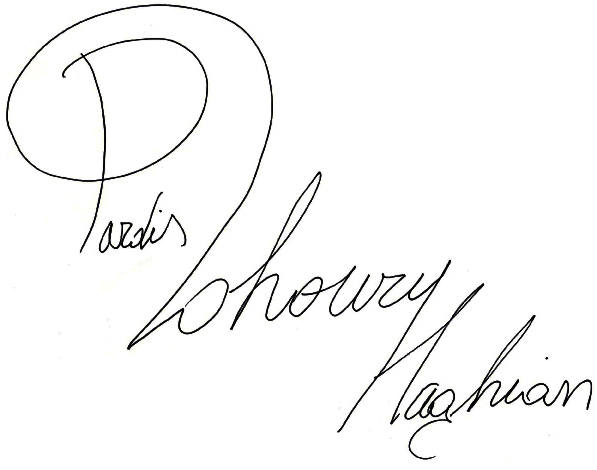 Pardis
Zohoury
Haghian